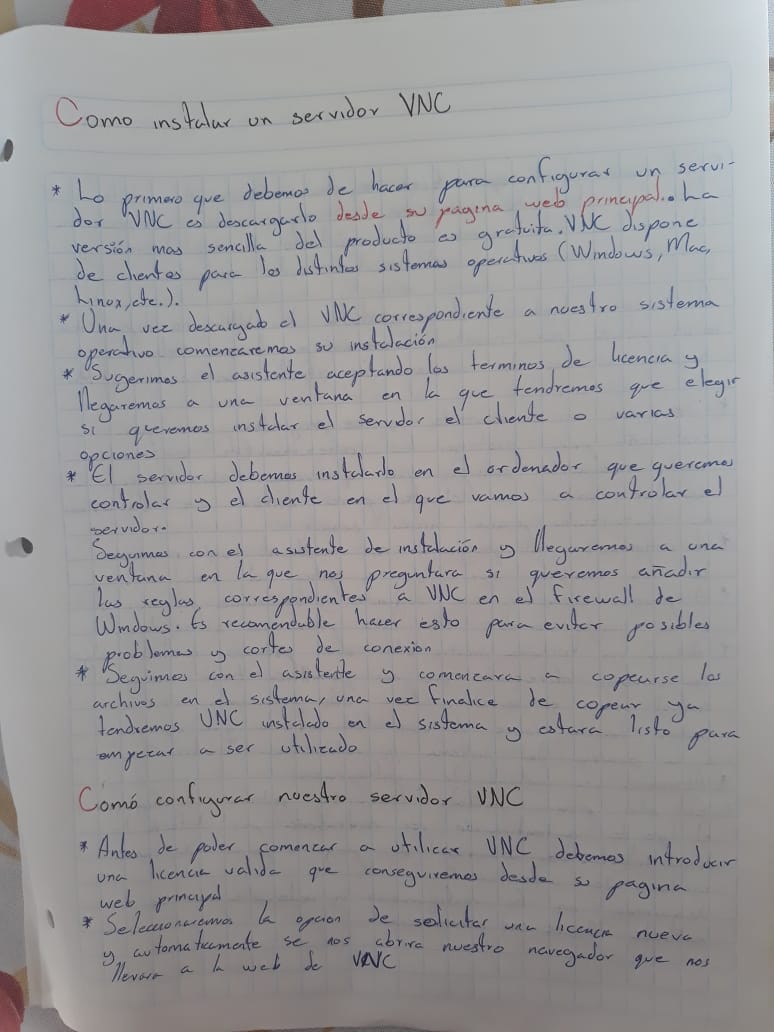 Como instalar un servidor VNC
* Lo primero que debemos de hacer para configurar un servi-
dor VNC es descargarlo desde su página web principal. La
versión mas sencilla del producto es gratuita. VNC dispone
de clientes para los distintos sistemas operativos (Windows, Mac,
Linux, etc.).
* Una vez descargado el VNC correspondiente a nuestro sistema
operativo comenzaremos su instalación
* Sugerimos el asistente aceptando los terminos de licencia y
llegaremos a una ventana en la que tendremos que elegir
si queremos instalar el servidor el cliente o varias
opciones
* El servidor debemos instalarlo en el ordenador que queremos
controlar y el cliente en el que vamos a controlar el
servidor.
Seguimos con el asistente de instalación y llegaremos a una
ventana en la que nos preguntara si queremos añadir
las reglas correspondientes a VNC en el firewall de
Windows. Es recomendable hacer esto para evitar posibles
problemas y cortes de conexion
* Seguimos con el asistente y comenzara a copearse los
archivos en el sistema, una vez finalice de copear ya
tendremos VNC instalado en el sistema y estara listo para
empezar a ser utilizado
Comó configurar nuestro servidor VNC
* Antes de poder comenzar a utilizar VNC debemos introducir
una licencia valida que conseguiremos desde su pagina
web principal
* Seleccionaremos la opcion de solicitar una licencia nueva
y automaticamente se nos abrira nuestro navegador que nos
llevara a la web de VNC